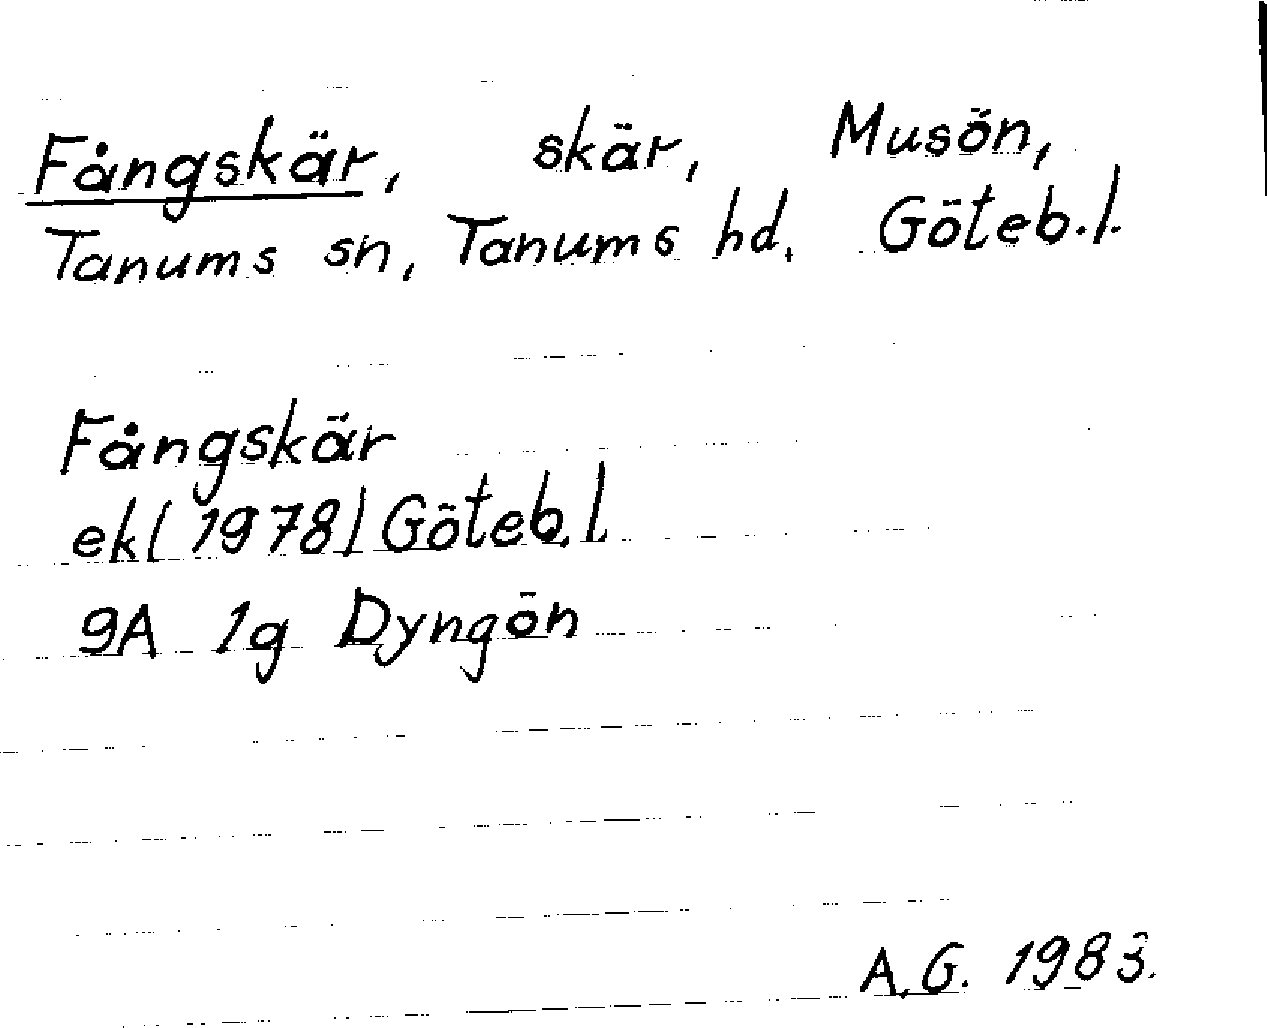 Fångskär, skär, Musön,
Tanums sn, Tanums hd. Göteb.l.
Fångskär
ek(1978) Göteb.l.
9A 1g Dyngön
A.G. 1983.